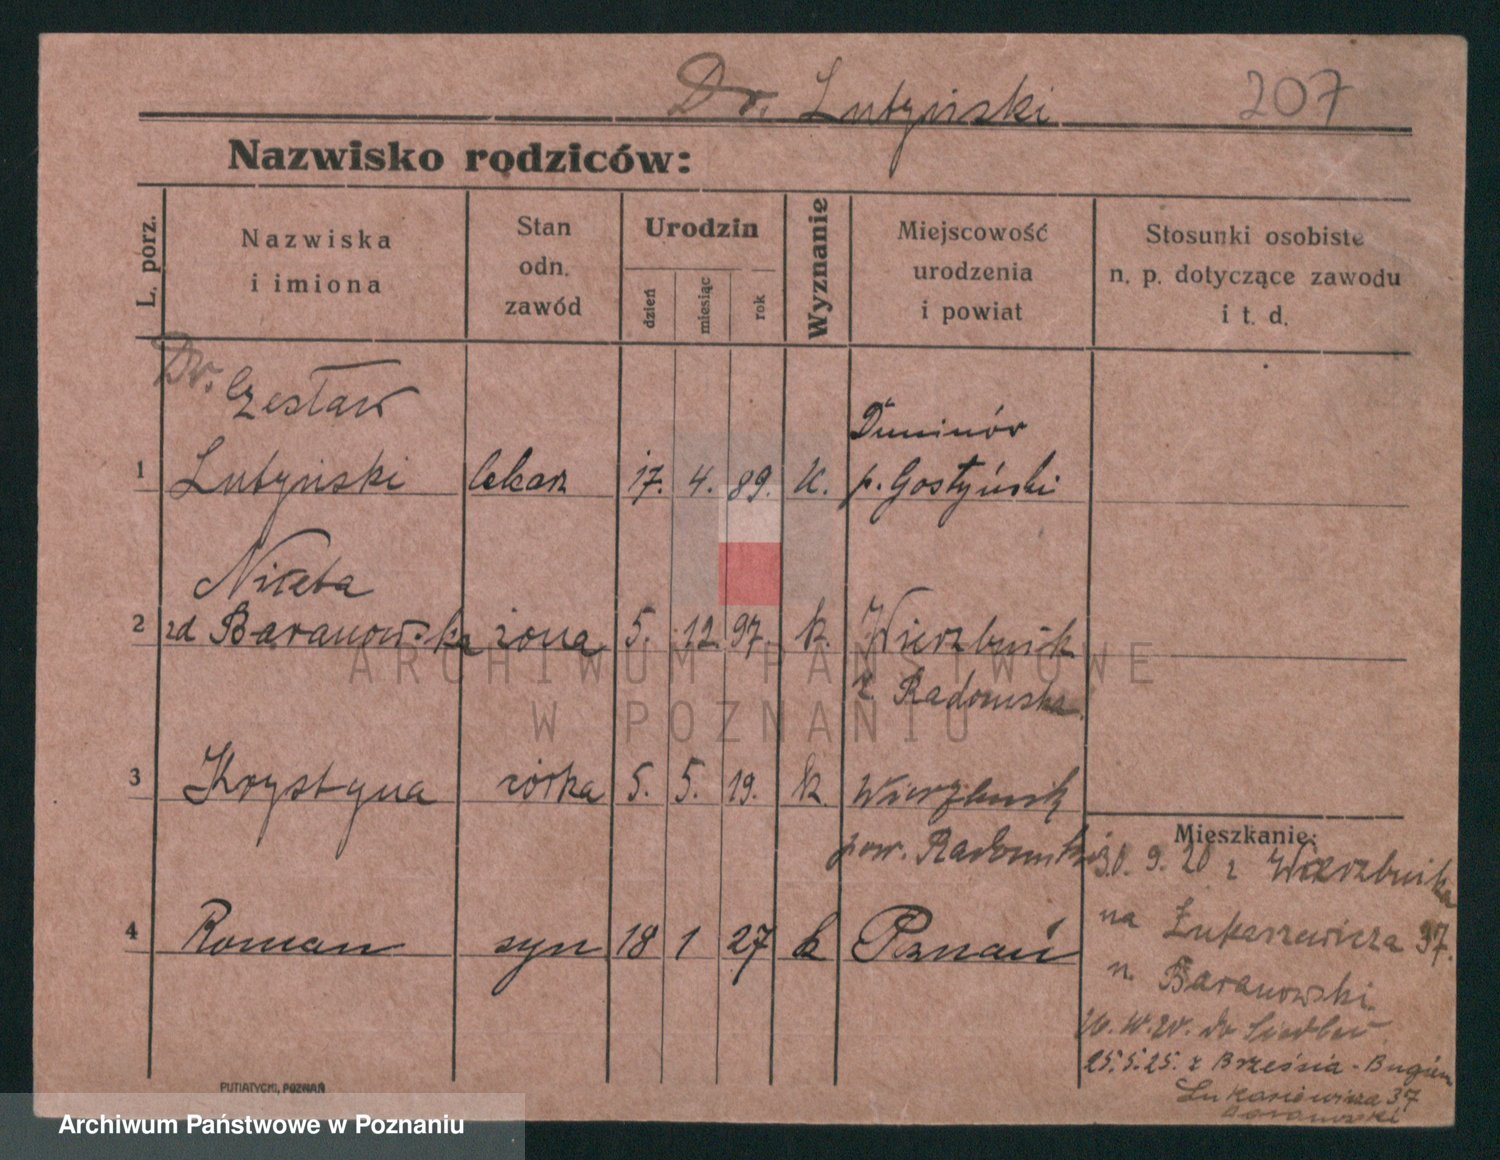 Dr. Lutyński 207
Nazwisko rodziców:
L. porz.
Nazwiska
i imiona
Stan
odn.
zawód
Urodzin
dzień
miesiąc
rok
Wyznanie
Miejscowość
urodzenia
i powiat
Stosunki osobiste
n. p. dotyczące zawodu
i t. d.
Dr. Czesław
1 Lutyński lekarz 17. 4. 89. k. p. Gostyński
2 zd Baranowska żona 5. 12. 97. k. Wierzbnik
z. Radomska
3 Krystyna córka 5. 5. 19. k. Wierzbnik
pow. Radomski
4 Roman syn 18 1 27 k Poznań
Mieszkanie:
30. 9. 20 z Wierzbnika
na Łukaszewicza 37.
n. Baranowski.
do Siedlec
25.5.25. z Brześcia - Bugiem
Łukasiewicza 37
Baranowski
PUTIATYCKI, POZNAŃ
ARCHIWUM PAŃSTWOWE
W POZNANIU
Archiwum Państwowe w Poznaniu